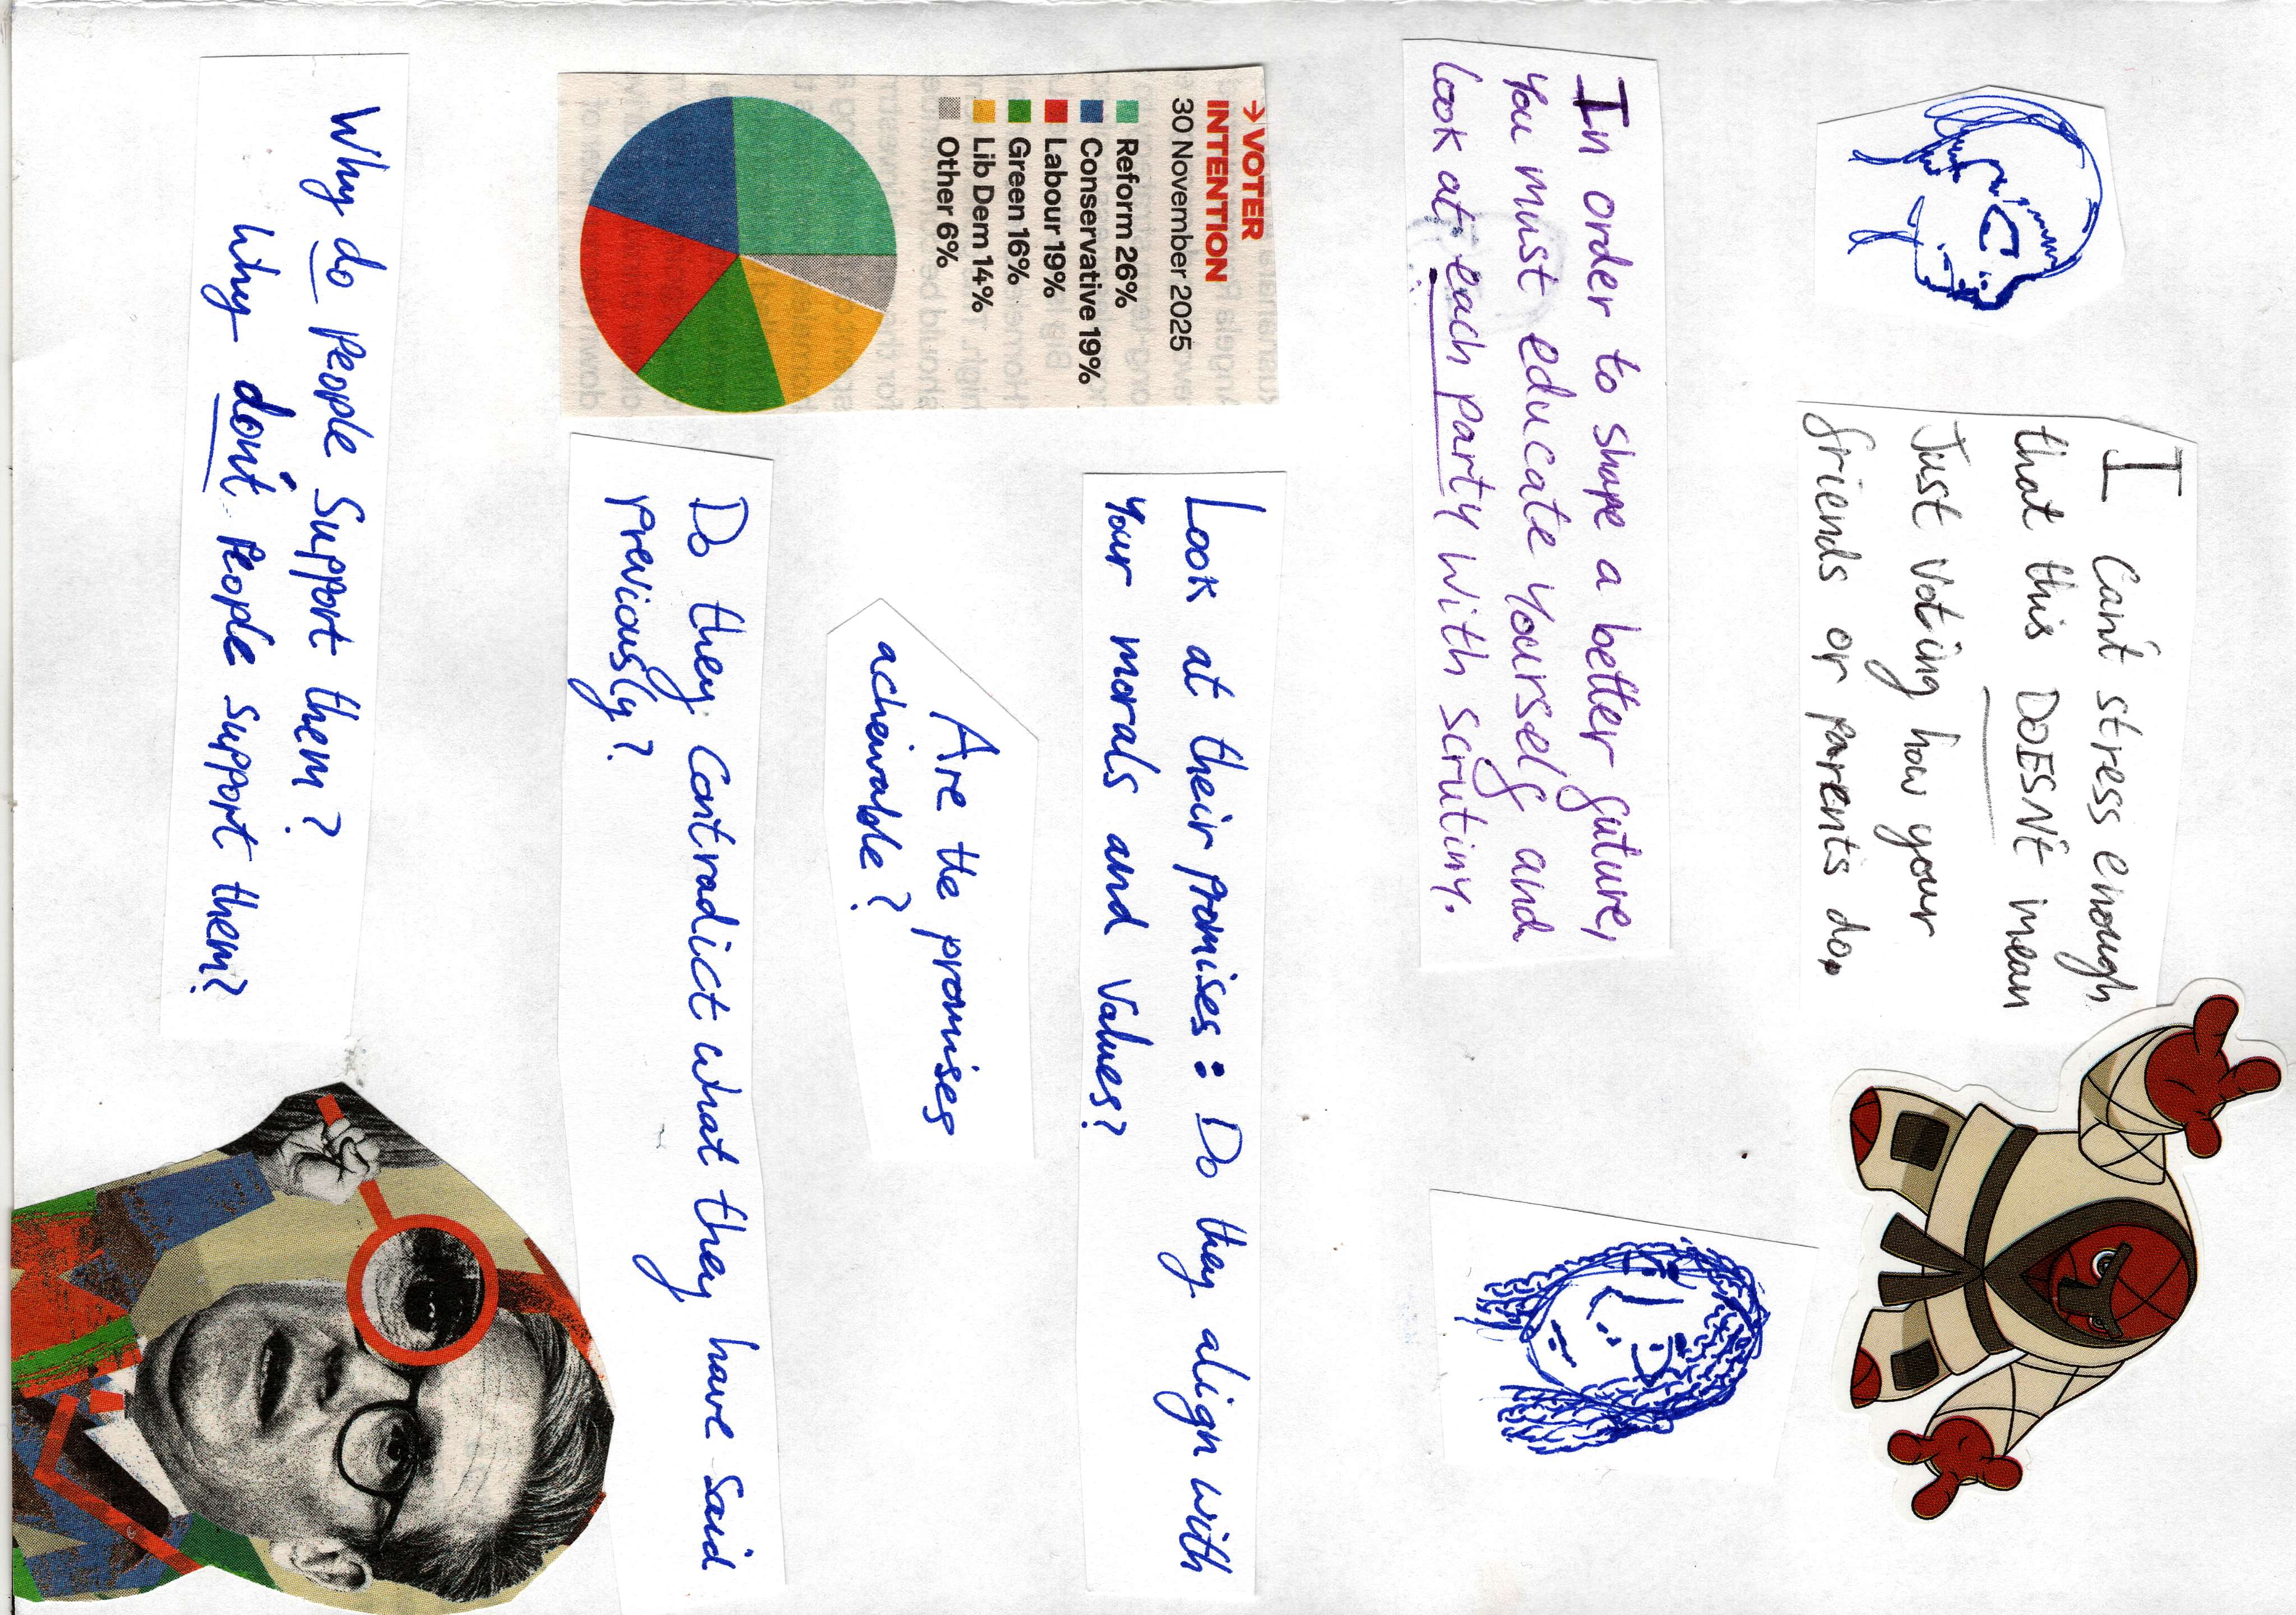 I can't stress enough
that this DOESN't mean
Just voting how your
friends or parents do.
In order to shape a better future,
you must educate yourself and
look at each party with scrutiny.
→ VOTER
INTENTION
30 November 2025
Reform 26%
Conservative 19%
Labour 19%
Green 16%
Lib Dem 14%
Other 6%
Look at their promises: Do they align with
your morals and values?
Are the promises
acheivable?
Do they contradict what they have said
previously?
Why do people support them?
Why don't people support them?